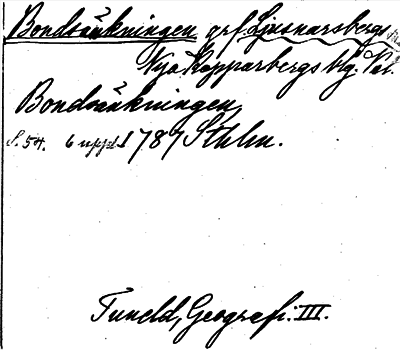 Bondsänkningen grf. Ljusnarsbergs
Nya Kopparbergs blg. Vsl.
Bondsänkningen,
S. 54. 6 uppl. 1787 Sthlm.
Tuneld, Geografi: III.